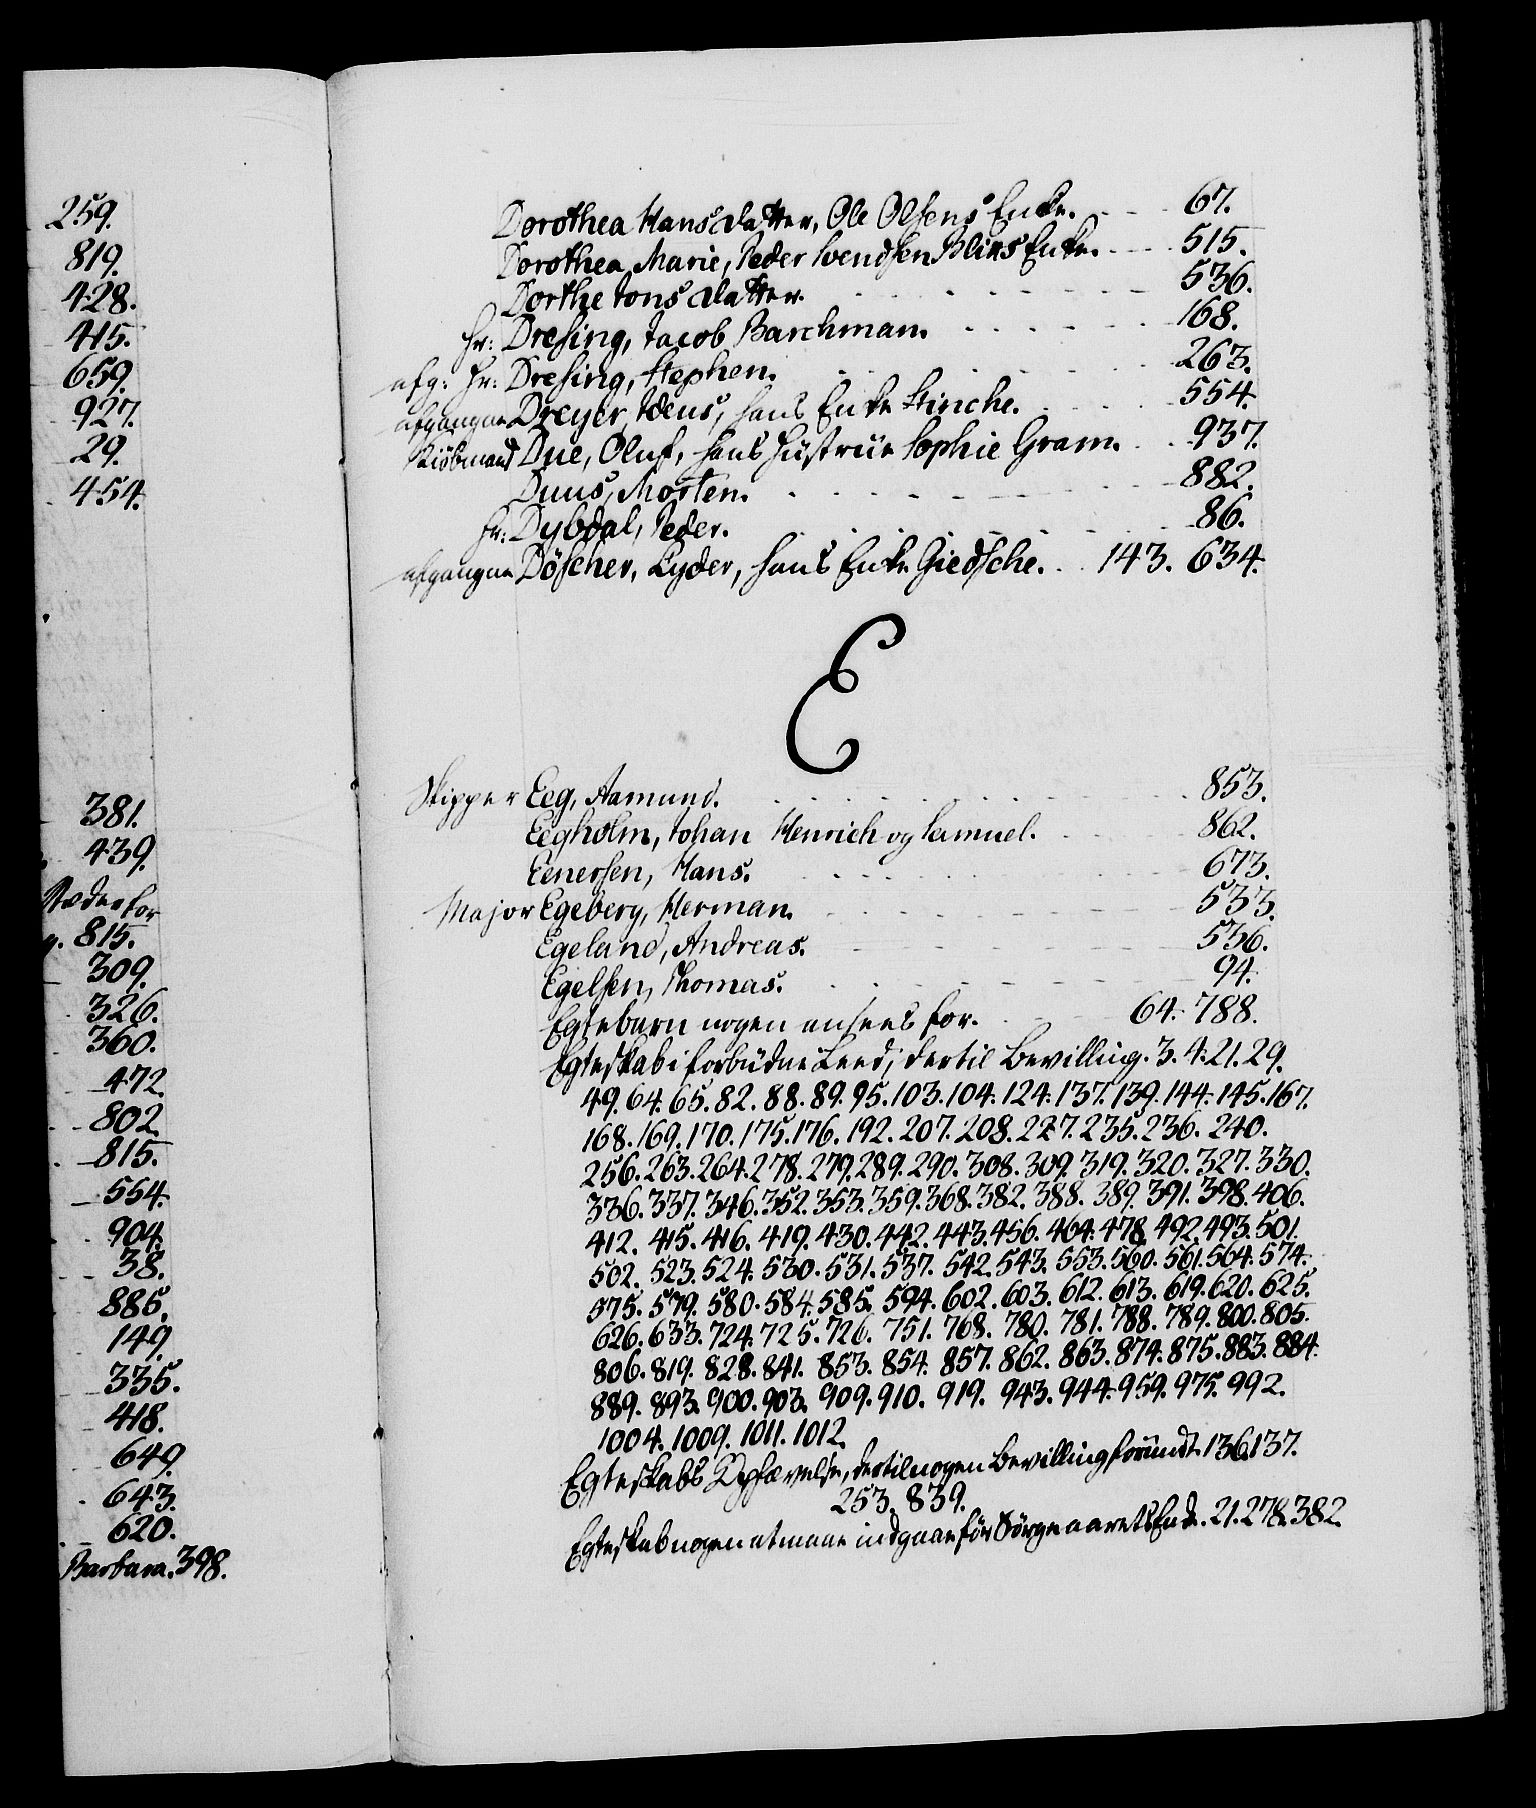 259.
819.
428.
415.
659.
927.
29.
454.
381.
439.
for
815.
309.
326.
360.
472.
802.
815.
554.
904.
38.
885.
149.
335.
418.
649.
643.
620.
Barbara. 398.
Dorothea Hansdatter, Ole Olsens Enke. 67.
Dorothea Marie, Peder Svendsen Blixs Enke. 515.
Dorthe Jonsdatter. 536.
Hr: Dresing, Jacob Barchman. 168.
afg: Hr: Dresing, Stephen. 263.
afgangne Dreyer, Jdens, hans Enke Stinche. 554.
Kiöbmand Due, Oluf, hans Hustrue Sophie Gram. 937.
Duus, Morten. 882.
Hr: Dybdal, Peder. 86.
afgangne Döscher, Lyder, hans Enke Giedsche. 143. 634.
E
Skipper Eeg, Aamund. 853.
Eegholm, Johan Henrich og Samuel. 862.
Eenersen, Hans. 673.
Major Egeberg, Herman. 533.
Egeland, Andreas. 536.
Egelsen, Thomas. 94.
Egtebarn nogen ansees for. 64. 788.
Egteskab i forbudne Leed, dertil Bevilling. 3. 4. 21. 29.
49. 64. 65. 82. 88. 89. 95. 103. 104. 124. 137. 139. 144. 145. 167.
168. 169. 170. 175. 176. 192. 207. 208. 227. 235. 236. 240.
256. 263. 264. 278. 279. 289. 290. 308. 309. 319. 320. 327. 330.
336. 337. 346. 352. 353. 359. 368. 382. 388. 389. 391. 398. 406.
412. 415. 416. 419. 430. 442. 443. 456. 464. 478. 492. 493. 501.
502. 523. 524. 530. 531. 537. 542. 543. 553. 560. 561. 564. 574.
575. 579. 580. 584. 585. 594. 602. 603. 612. 613. 619. 620. 625.
626. 633. 724. 725. 726. 751. 768. 780. 781. 788. 789. 800. 805.
806. 819. 828. 841. 853. 854. 857. 862. 863. 874. 875. 883. 884.
889. 893. 900. 903. 909. 910. 919. 943. 944. 959. 975. 992.
1004. 1009. 1011. 1012.
Egteskabs Ophævelse, dertil nogen Bevilling forundt. 136. 137.
253. 839.
Egteskab nogen at maae indgaae för Sörge aarets Ende. 21. 278. 382.